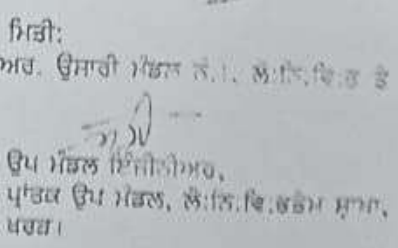 ਮਿਤੀ:
ਅਰ. ਉਸਾਰੀ ਮੰਡਲ ਨੰ.1. ਲੋ:ਨਿ.ਵਿ. ਤੇ
ਉਪ ਮੰਡਲ ਇੰਜੀਨੀਅਰ,
ਪ੍ਰਾਂਤਕ ਉਪ ਮੰਡਲ, ਲੋ:ਨਿ.ਵਿ. ਸ਼ਾਖਾ,
ਖਰੜ।